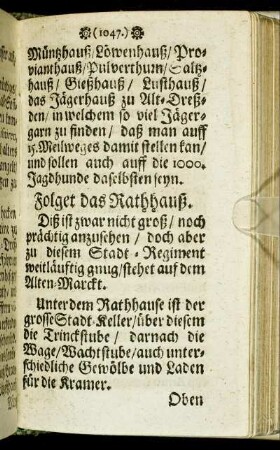 (1047.)
Müntzhauß/Löwenhauß/Pro-
vianthauß/Pulverthurn/Saltz-
hauß/ Gießhauß / Lusthauß /
das Jägerhauß zu Alt-Dreß-
den/ in welchem so viel Jäger-
garn zu finden/ daß man auff
15. Meilweges damit stellen kan/
und sollen auch auff die 1000.
Jagdhunde daselbsten seyn.
Folget das Rathhauß.
Diß ist zwar nicht groß/ noch
prächtig anzusehen / doch aber
zu diesem Stadt-Regiment
weitläuftig gnug/stehet auf dem
Alten-Marckt.
Unter dem Rathhause ist der
grosse Stadt-Keller/über diesem
die Trinckstube / darnach die
Wage/Wachtstube/auch unter-
schiedliche Gewölbe und Laden
für die Kramer.
Oben